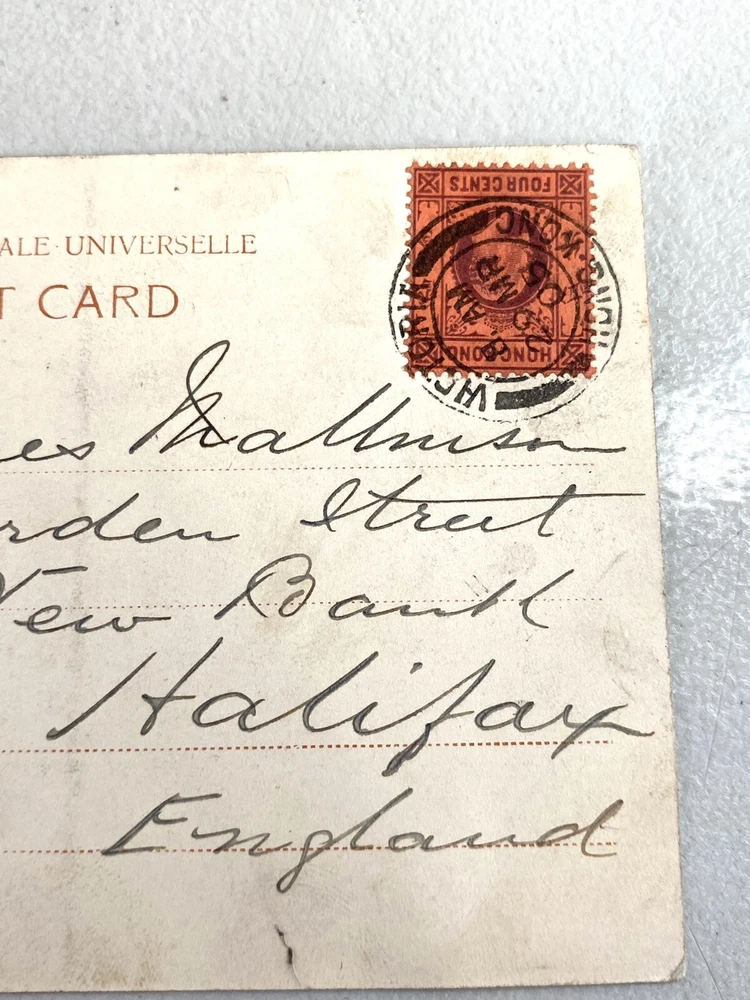 FOUR CENTS
HONG KONG
VICTORIA HONG-KONG
8 AM
MR
ALE · UNIVERSELLE
T CARD
es Mathinson
rden Street
New Bank
Halifax
England